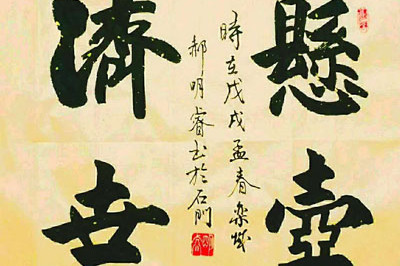 懸壺
濟世
時在戊戌孟春
郝明睿书於石門